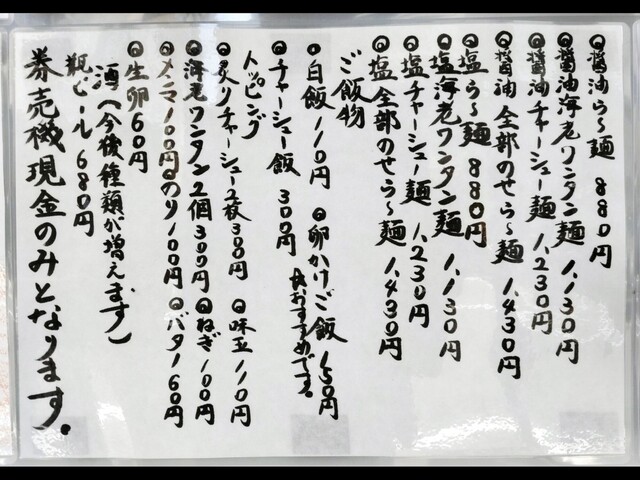 ◎醤油ら〜麺 880円
◎醤油海老ワンタン麺 1,130円
◎醤油チャーシュー麺 1,230円
◎醤油全部のせら〜麺 1,430円
◎塩ら〜麺 880円
◎塩海老ワンタン麺 1,130円
◎塩チャーシュー麺 1,230円
◎塩全部のせら〜麺 1,430円
ご飯物
◎白飯 110円 ◎卵かけご飯 150円
おすすめです。
◎チャーシュー飯 300円
トッピング
◎炙りチャーシュー2枚 300円 ◎味玉 110円
◎海老ワンタン2個 300円 ◎ねぎ 100円
◎メンマ100円 ◎のり100円 ◎バター60円
◎生卵60円
酒(今後種類が増えます)
瓶ビール 680円
券売機現金のみとなります。